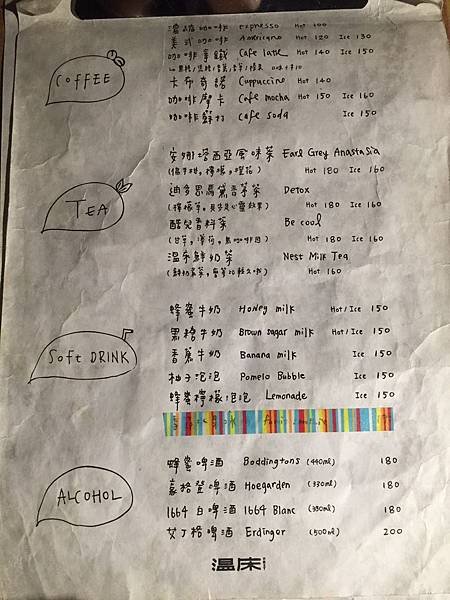 COFFEE
濃縮咖啡 Espresso Hot 100
美式咖啡 Americano Hot 120 Ice 130
咖啡拿鐵 Cafe latte Hot 140 Ice 150
卡布奇諾 Cuppuccino Hot 140
咖啡摩卡 Cafe mocha Hot 150 Ice 160
咖啡蘇打 Cafe soda Ice 150
TEA
安娜塔西亞風味茶 Earl Grey Anastasia
Hot 180 Ice 160
迪多思瑪黛香茅茶 Detox
Hot 180 Ice 160
酷兒香料茶 Be cool
Hot 180 Ice 160
溫床鮮奶茶 Nest Milk Tea
Hot 160
Soft DRINK
蜂蜜牛奶 Honey milk Hot/Ice 150
黑糖牛奶 Brown sugar milk Hot/Ice 150
香蕉牛奶 Banana milk Ice 150
柚子泡泡 Pomelo Bubble Ice 150
蜂蜜檸檬泡泡 Lemonade Ice 150
ALCOHOL
蜂蜜啤酒 Boddingtons (440ml) 180
豪格登啤酒 Hoegarden (330ml) 180
1664白啤酒 1664 Blanc (330ml) 180
艾丁格啤酒 Erdinger (500ml) 200
溫床